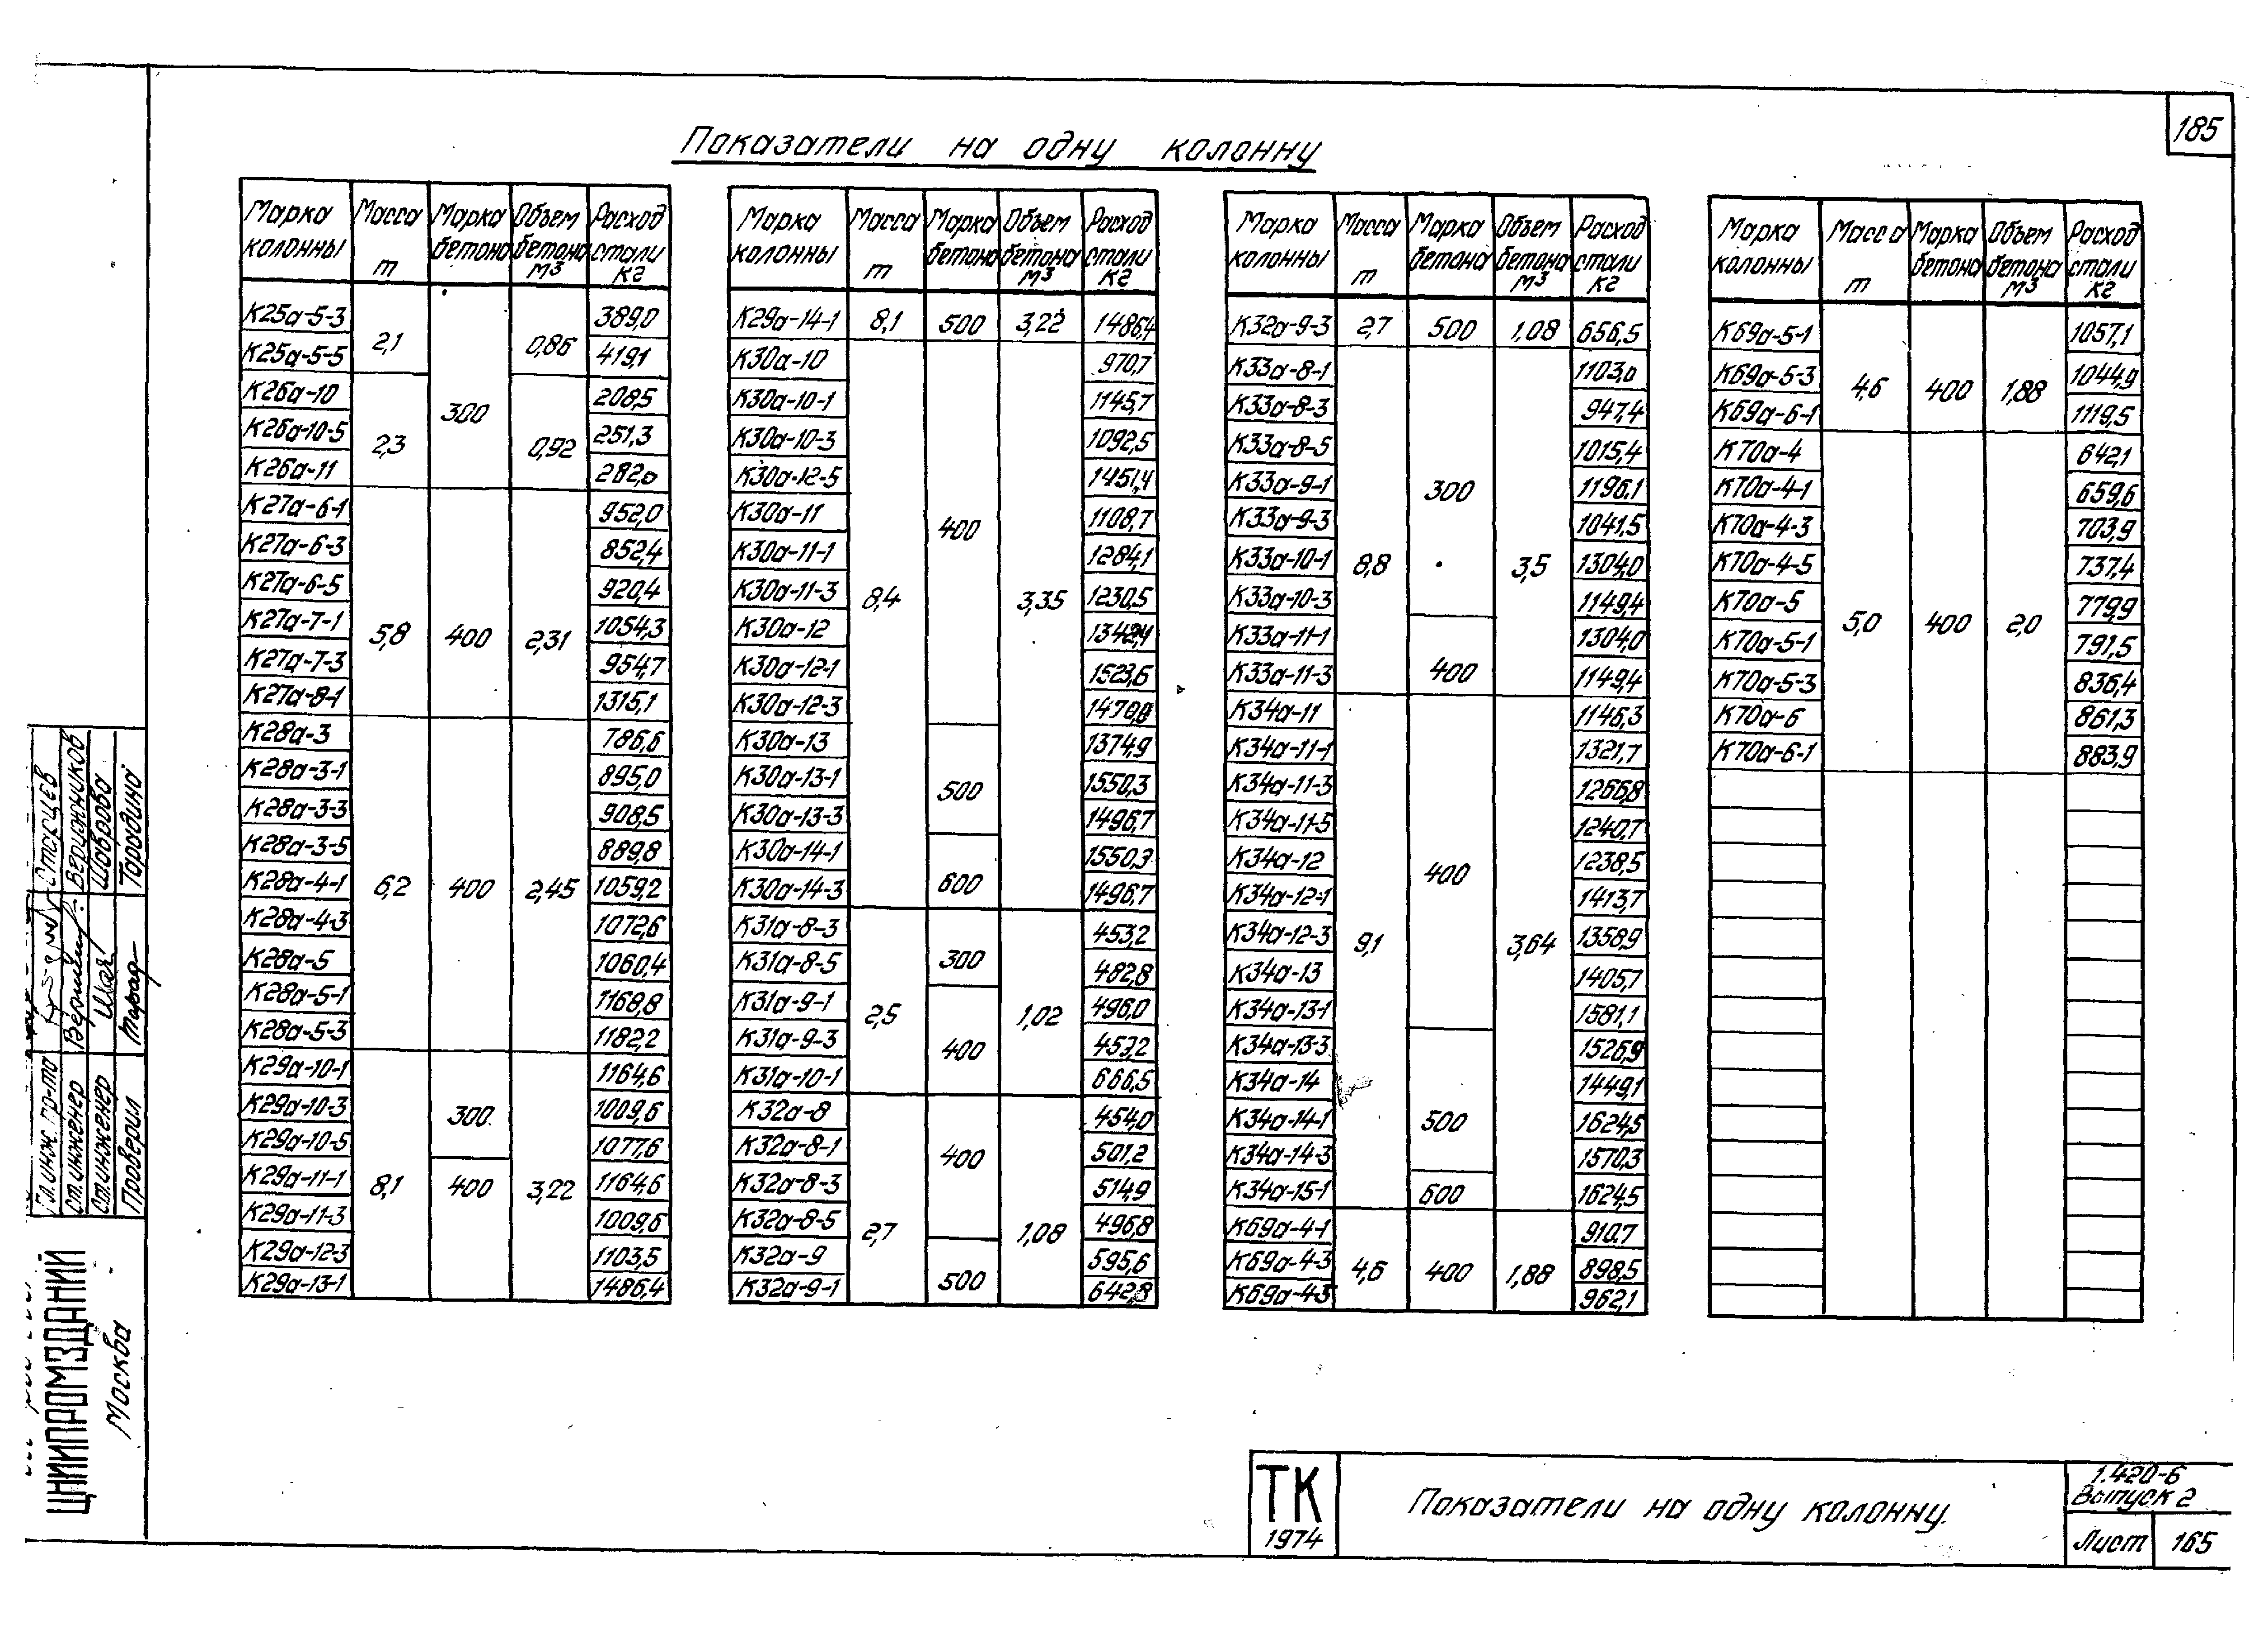 185
Показатели на одну колонну
Марка колонны | Масса т | Марка бетона | Объем бетона м3 | Расход стали кг
К25а-5-3 | 2,1 | 300 | 0,86 | 389,0
К25а-5-5 | 419,1
К26а-10 | 2,3 | 0,92 | 208,5
К26а-10-5 | 251,3
К26а-11 | 282,0
К27а-6-1 | 5,8 | 400 | 2,31 | 952,0
К27а-6-3 | 852,4
К27а-6-5 | 920,4
К27а-7-1 | 1054,3
К27а-7-3 | 954,7
К27а-8-1 | 1315,1
К28а-3 | 6,2 | 400 | 2,45 | 786,6
К28а-3-1 | 895,0
К28а-3-3 | 908,5
К28а-3-5 | 889,8
К28а-4-1 | 1059,2
К28а-4-3 | 1072,6
К28а-5 | 1060,4
К28а-5-1 | 1168,8
К28а-5-3 | 1182,2
К29а-10-1 | 8,1 | 300 | 3,22 | 1164,6
К29а-10-3 | 1009,6
К29а-10-5 | 1077,6
К29а-11-1 | 400 | 1164,6
К29а-11-3 | 1009,6
К29а-12-3 | 1103,5
К29а-13-1 | 1486,4
Марка колонны | Масса т | Марка бетона | Объем бетона м3 | Расход стали кг
К29а-14-1 | 8,1 | 500 | 3,22 | 1486,4
К30а-10 | 8,4 | 400 | 3,35 | 970,7
К30а-10-1 | 1145,7
К30а-10-3 | 1092,5
К30а-12-5 | 1451,4
К30а-11 | 1108,7
К30а-11-1 | 1284,1
К30а-11-3 | 1230,5
К30а-12 | 1342,4
К30а-12-1 | 1523,6
К30а-12-3 | 1470,0
К30а-13 | 500 | 1374,9
К30а-13-1 | 1550,3
К30а-13-3 | 1496,7
К30а-14-1 | 600 | 1550,3
К30а-14-3 | 1496,7
К31а-8-3 | 2,5 | 300 | 1,02 | 453,2
К31а-8-5 | 482,8
К31а-9-1 | 400 | 496,0
К31а-9-3 | 453,2
К31а-10-1 | 666,5
К32а-8 | 2,7 | 400 | 1,08 | 454,0
К32а-8-1 | 501,2
К32а-8-3 | 514,9
К32а-8-5 | 496,8
К32а-9 | 500 | 595,6
К32а-9-1 | 642,8
Марка колонны | Масса т | Марка бетона | Объем бетона м3 | Расход стали кг
К32а-9-3 | 2,7 | 500 | 1,08 | 656,5
К33а-8-1 | 8,8 | 300 | 3,5 | 1103,0
К33а-8-3 | 947,4
К33а-8-5 | 1015,4
К33а-9-1 | 1196,1
К33а-9-3 | 1041,5
К33а-10-1 | 1304,0
К33а-10-3 | 1149,4
К33а-11-1 | 400 | 1304,0
К33а-11-3 | 1149,4
К34а-11 | 9,1 | 400 | 3,64 | 1146,3
К34а-11-1 | 1321,7
К34а-11-3 | 1266,8
К34а-11-5 | 1240,7
К34а-12 | 1238,5
К34а-12-1 | 1413,7
К34а-12-3 | 1358,9
К34а-13 | 1405,7
К34а-13-1 | 1581,1
К34а-13-3 | 500 | 1526,9
К34а-14 | 1449,1
К34а-14-1 | 1624,5
К34а-14-3 | 1570,3
К34а-15-1 | 600 | 1624,5
К69а-4-1 | 4,6 | 400 | 1,88 | 910,7
К69а-4-3 | 898,5
К69а-4-5 | 962,1
Марка колонны | Масса т | Марка бетона | Объем бетона м3 | Расход стали кг
К69а-5-1 | 4,6 | 400 | 1,88 | 1057,1
К69а-5-3 | 1044,9
К69а-6-1 | 1119,5
К70а-4 | 5,0 | 400 | 2,0 | 642,1
К70а-4-1 | 659,6
К70а-4-3 | 703,9
К70а-4-5 | 737,4
К70а-5 | 779,9
К70а-5-1 | 791,5
К70а-5-3 | 836,4
К70а-6 | 861,3
К70а-6-1 | 883,9
Гл. инж. пр-та Старцев
ст. инженер Верижников
ст. инженер Шаврова
Проверил Тарадина
ЦНИИПРОМЗДАНИЙ
Москва
ТК
1974
Показатели на одну колонну.
1.420-6
Выпуск 2
Лист 165